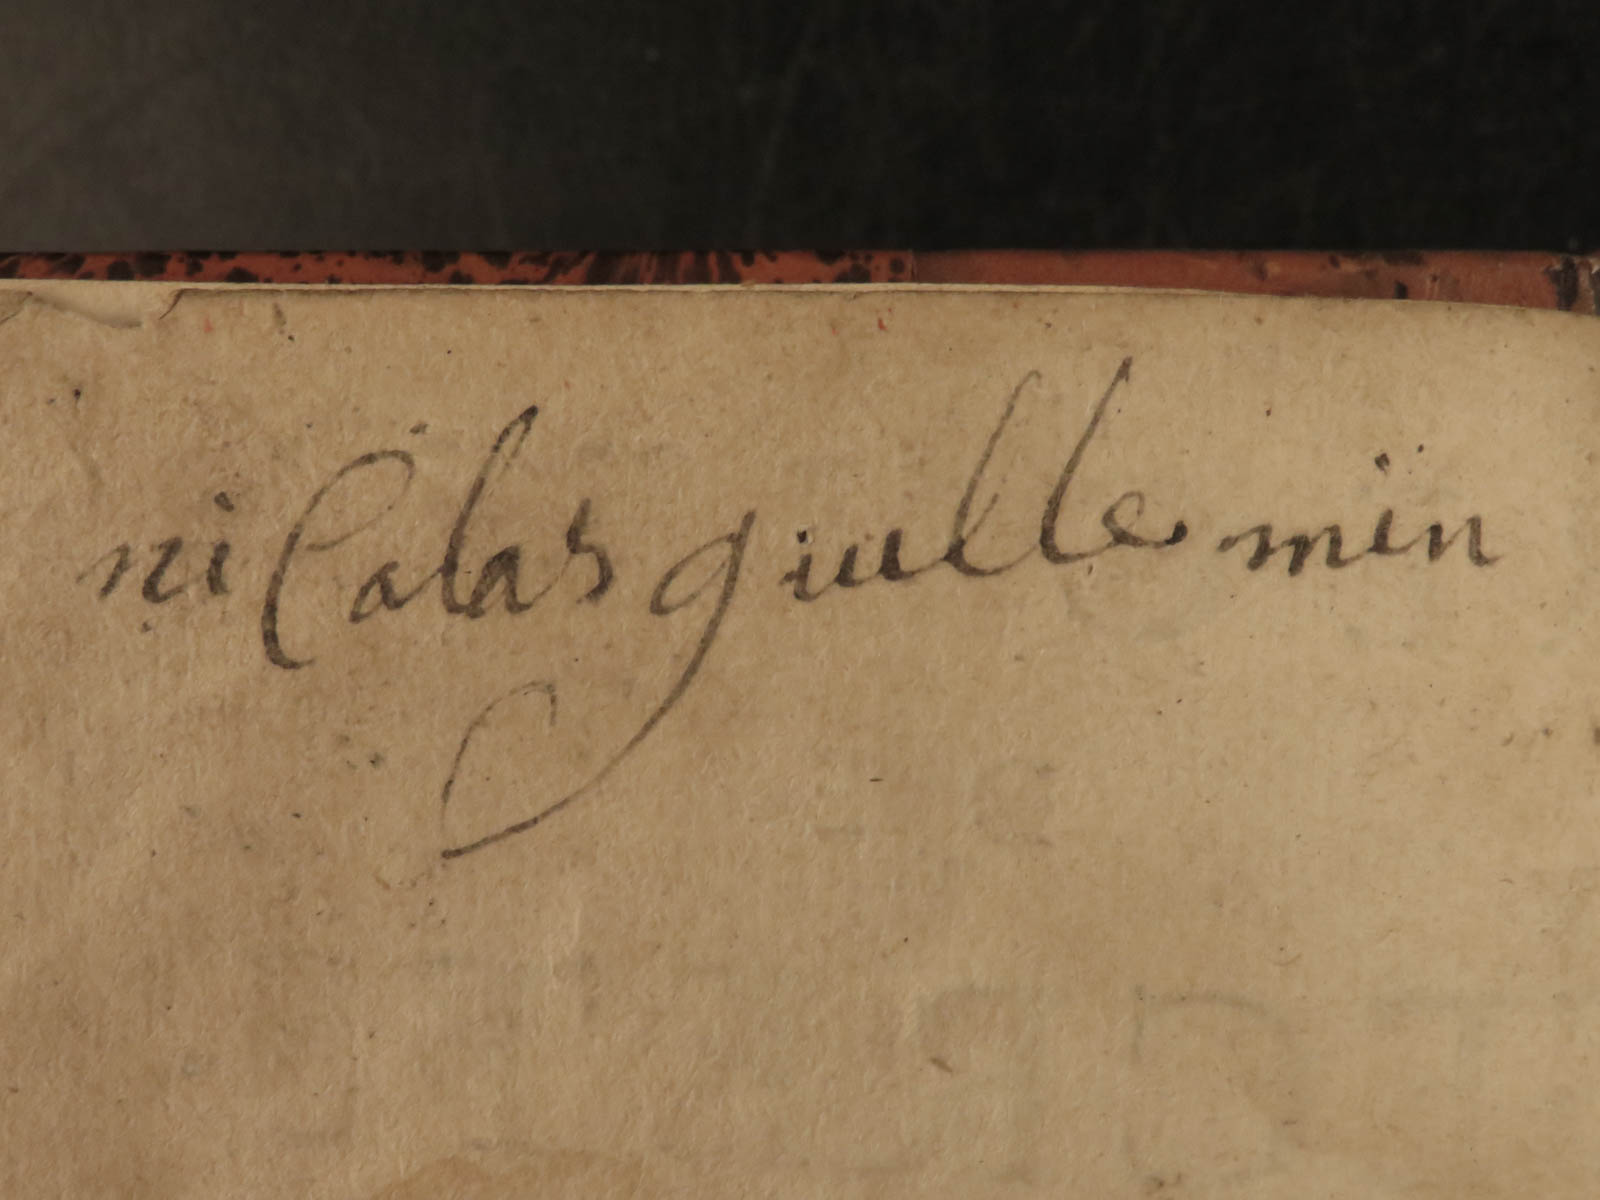 niColas guille min